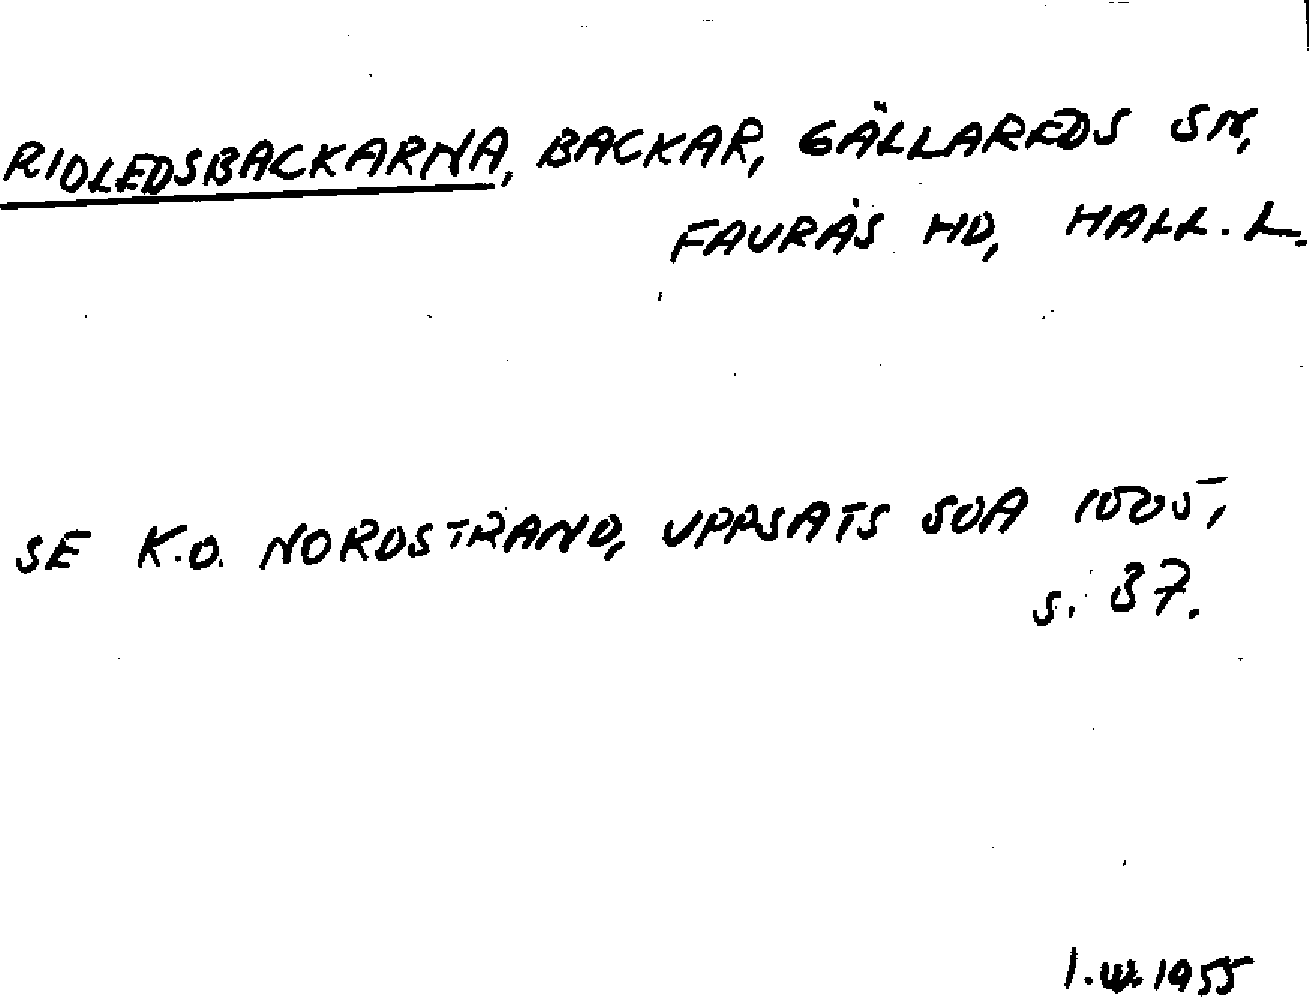 RIDLEDSBACKARNA, BACKAR, GÄLLAREDS SN,
FAURÅS HD, HALL. L.
SE K.O. NORDSTRAND, UPPSATS SOA 1005,
s. 37.
1.III.1955